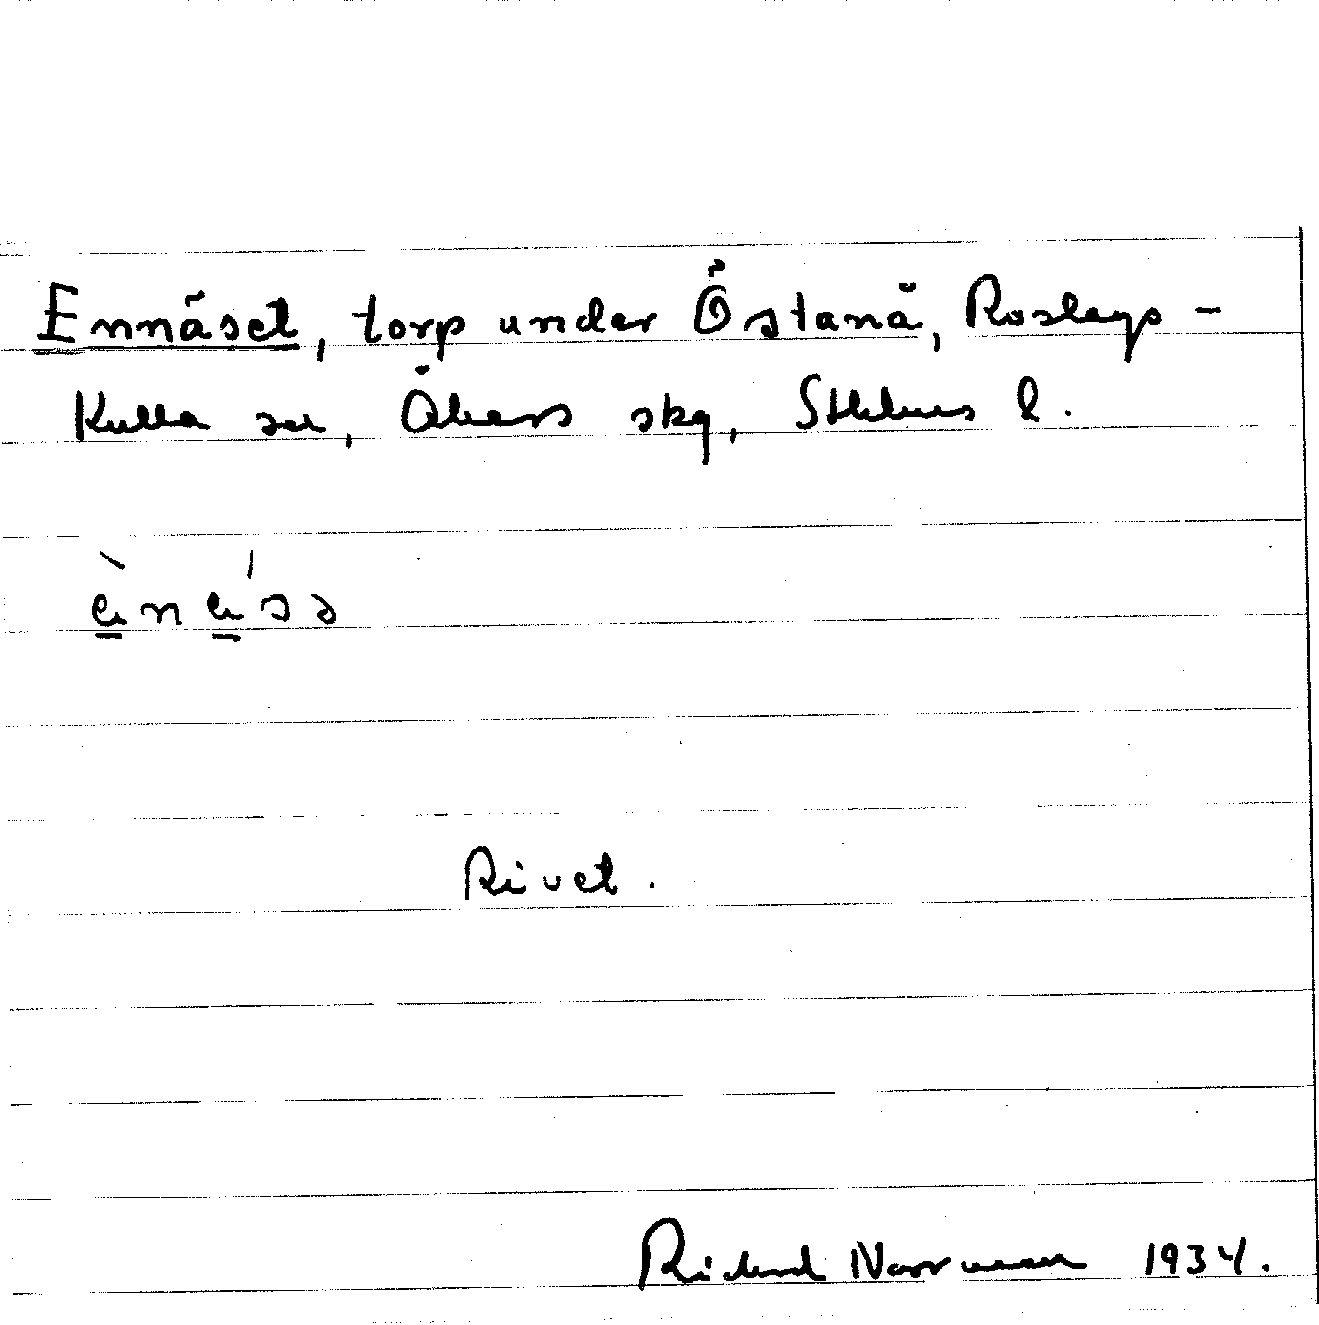 Ennäset, torp under Östanå, Roslags-
Kulla sn, Åkers skg, Sthlms l.
Rivet.
Rickard Norrman 1934.